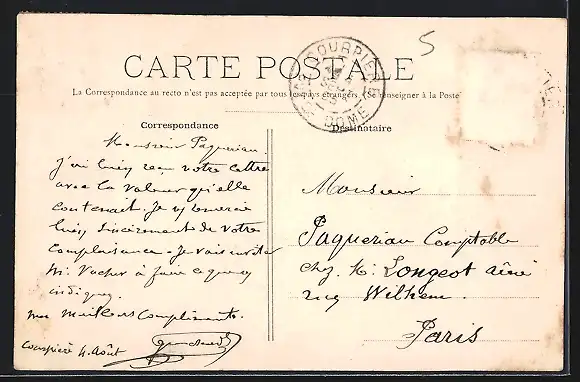 5
COURPIÈRE
PUY-DE-DOME
CARTE POSTALE
La Correspondance au recto n'est pas acceptée par tous les pays étrangers. (Se renseigner à la Poste
Correspondance
Destinataire
Monsieur Paquerian
J'ai bien reçu votre lettre
avec la valeur qu'elle
contenait. Je vs remercie
bien sincèrement de votre
complaisance. Je vais
Mr. Vacher à faire ce que
indiquez.
mes meilleurs compliments.
Courpière 4 Août
Monsieur
Paquerian Comptable
chez Mr. Longeot aîné
rue Wilhem
Paris